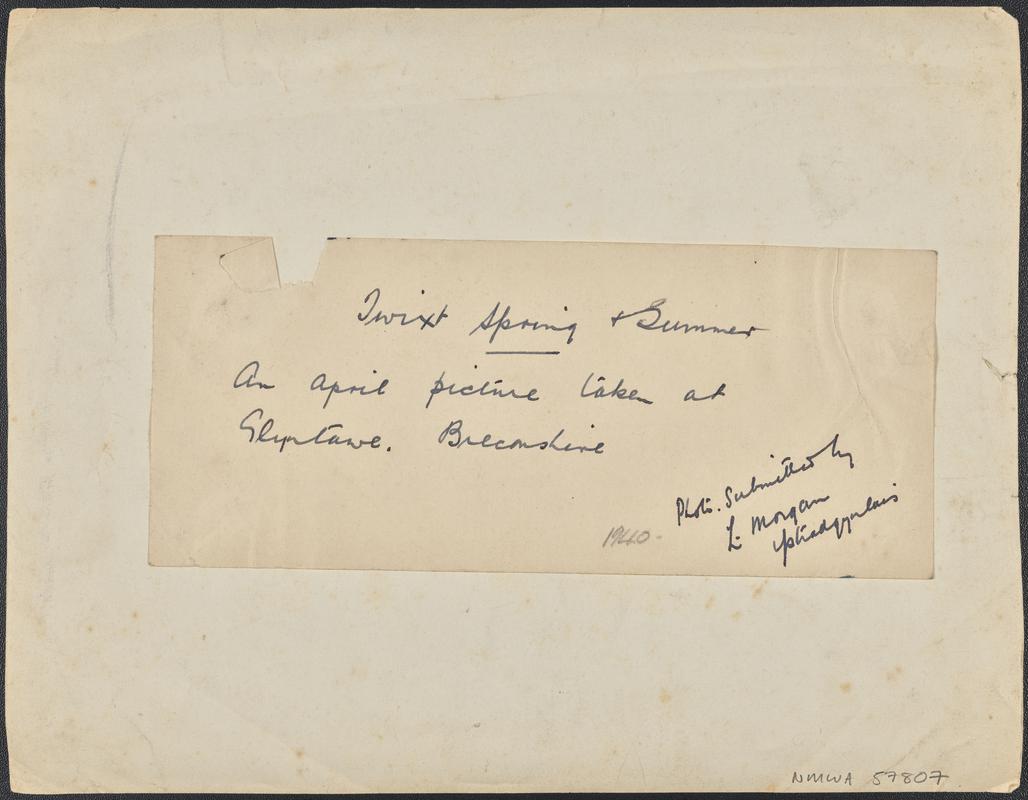 Twixt Spring + Summer
An April picture taken at
Glyntawe. Breconshire
Photo. Submitted by
L. Morgan
Ystradgynlais
1940-
NMWA 57807